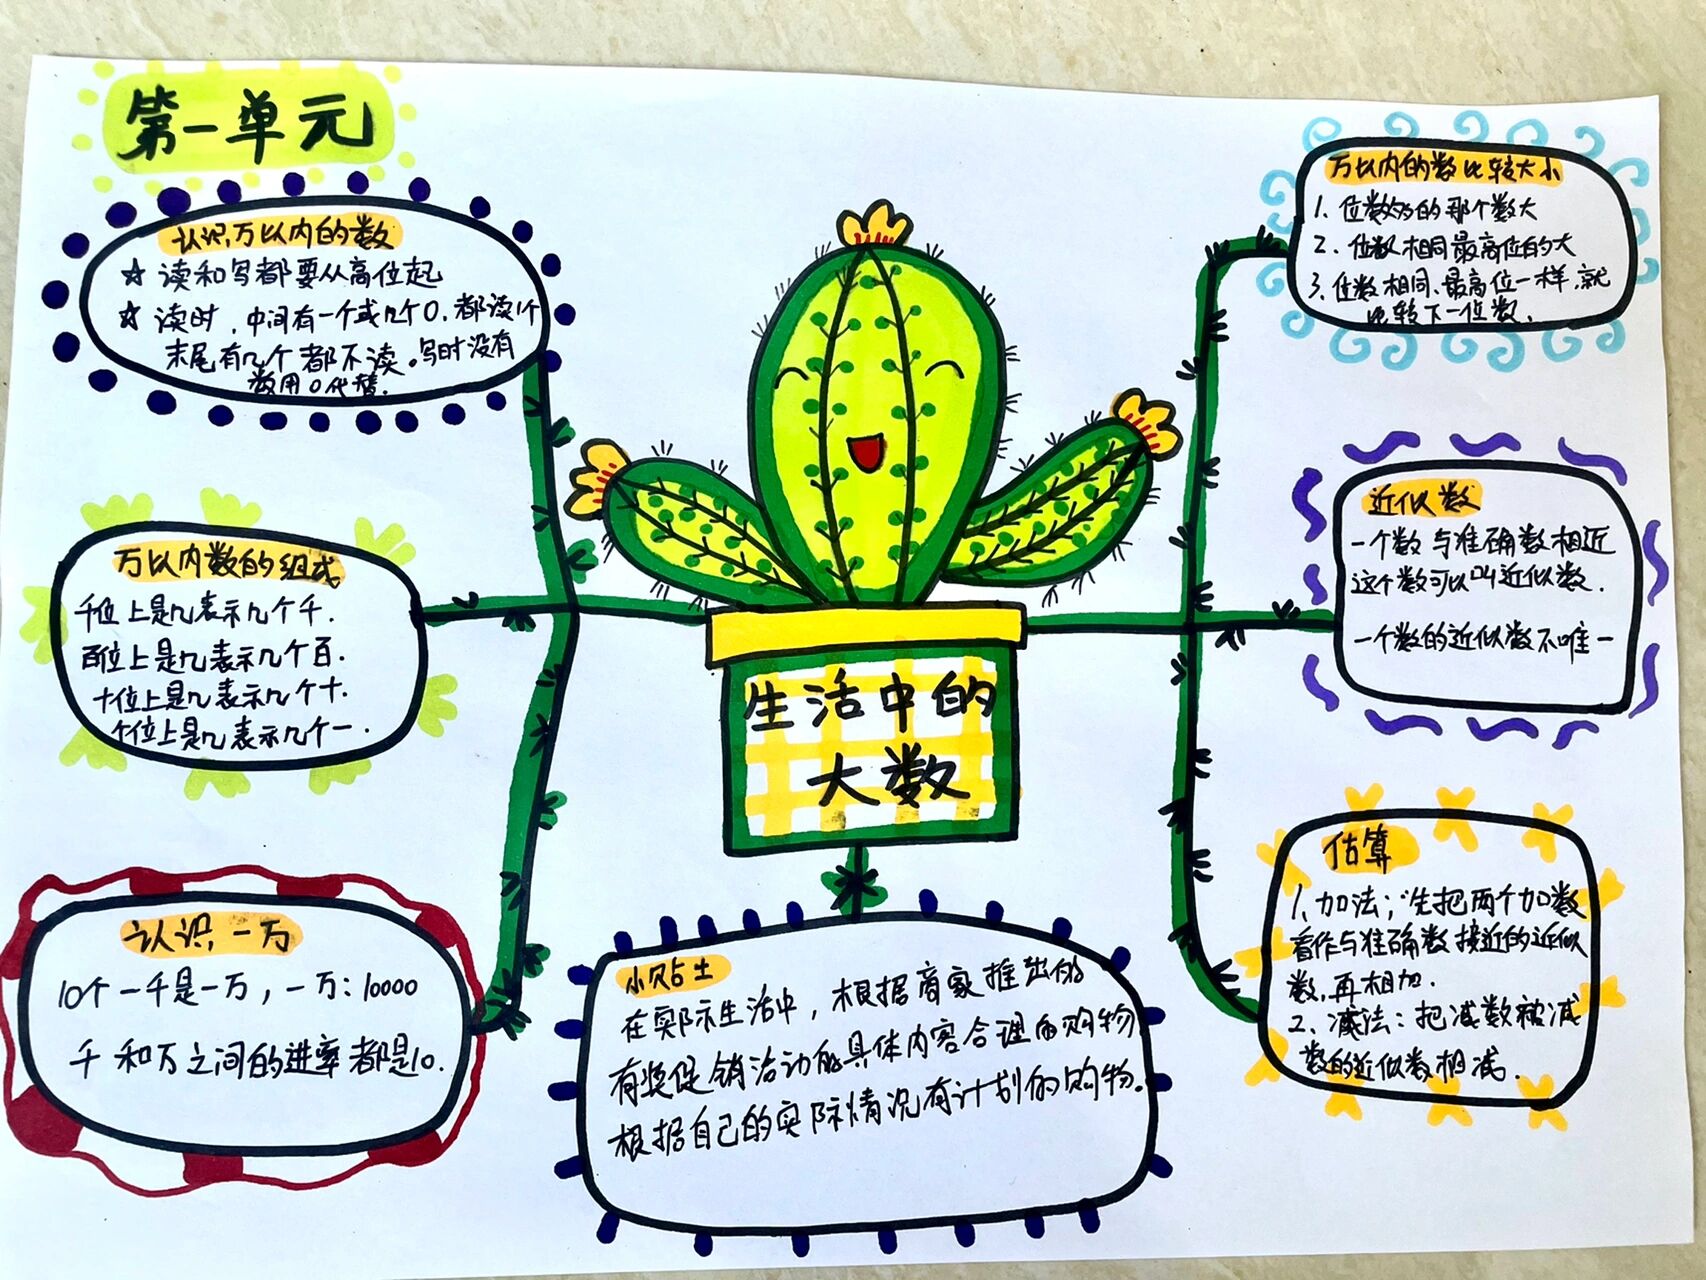 第一单元
认识万以内的数
☆ 读和写都要从高位起
☆ 读时，中间有一个或几个0，都读1个
末尾有几个都不读。写时没有
数用0代替.
万以内数的组成
千位上是几表示几个千.
百位上是几表示几个百.
十位上是几表示几个十.
个位上是几表示几个一.
认识一万
10个一千是一万，一万：10000
千和万之间的进率都是10.
生活中的
大数
小贴士
在实际生活中，根据商家推出的
有奖促销活动的具体内容合理的购物
根据自己的实际情况有计划的购物。
万以内的数比较大小
1. 位数多的那个数大
2. 位数相同最高位的大
3. 位数相同、最高位一样，就
比较下一位数.
近似数
一个数与准确数相近
这个数可以叫近似数.
一个数的近似数不唯一
估算
1、加法；先把两个加数
看作与准确数接近的近似
数，再相加.
2、减法：把减数被减
数的近似数相减.